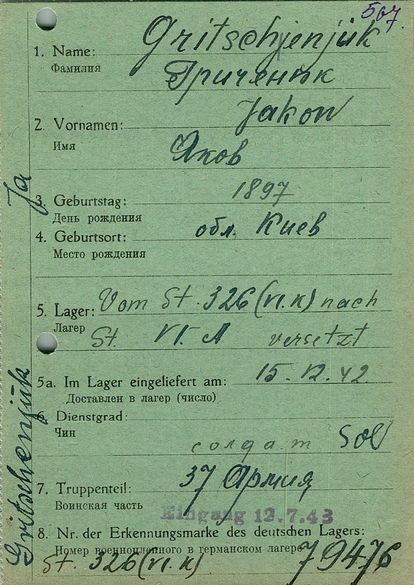 507.
Gritschjenjük
1. Name:
Фамилия
Гриченюк
Jakow
2. Vornamen:
Имя
Яков
3. Geburtstag: 1897
День рождения
4. Geburtsort: обл. Киев
Место рождения
5. Lager: Vom St. 326 (VI.K) nach
Лагерь
St. VI. A versetzt
5a. Im Lager eingeliefert am: 15.12.42.
Доставлен в лагер (число)
6. Dienstgrad:
Чин
солдат Sol
7. Truppenteil: 37 Армия
Воинская часть
Eingang 12.7.43
8. Nr. der Erkennungsmarke des deutschen Lagers:
Номер военнопленного в германском лагере
St. 326 (VI.K) 79476
Gritschenjük Ja